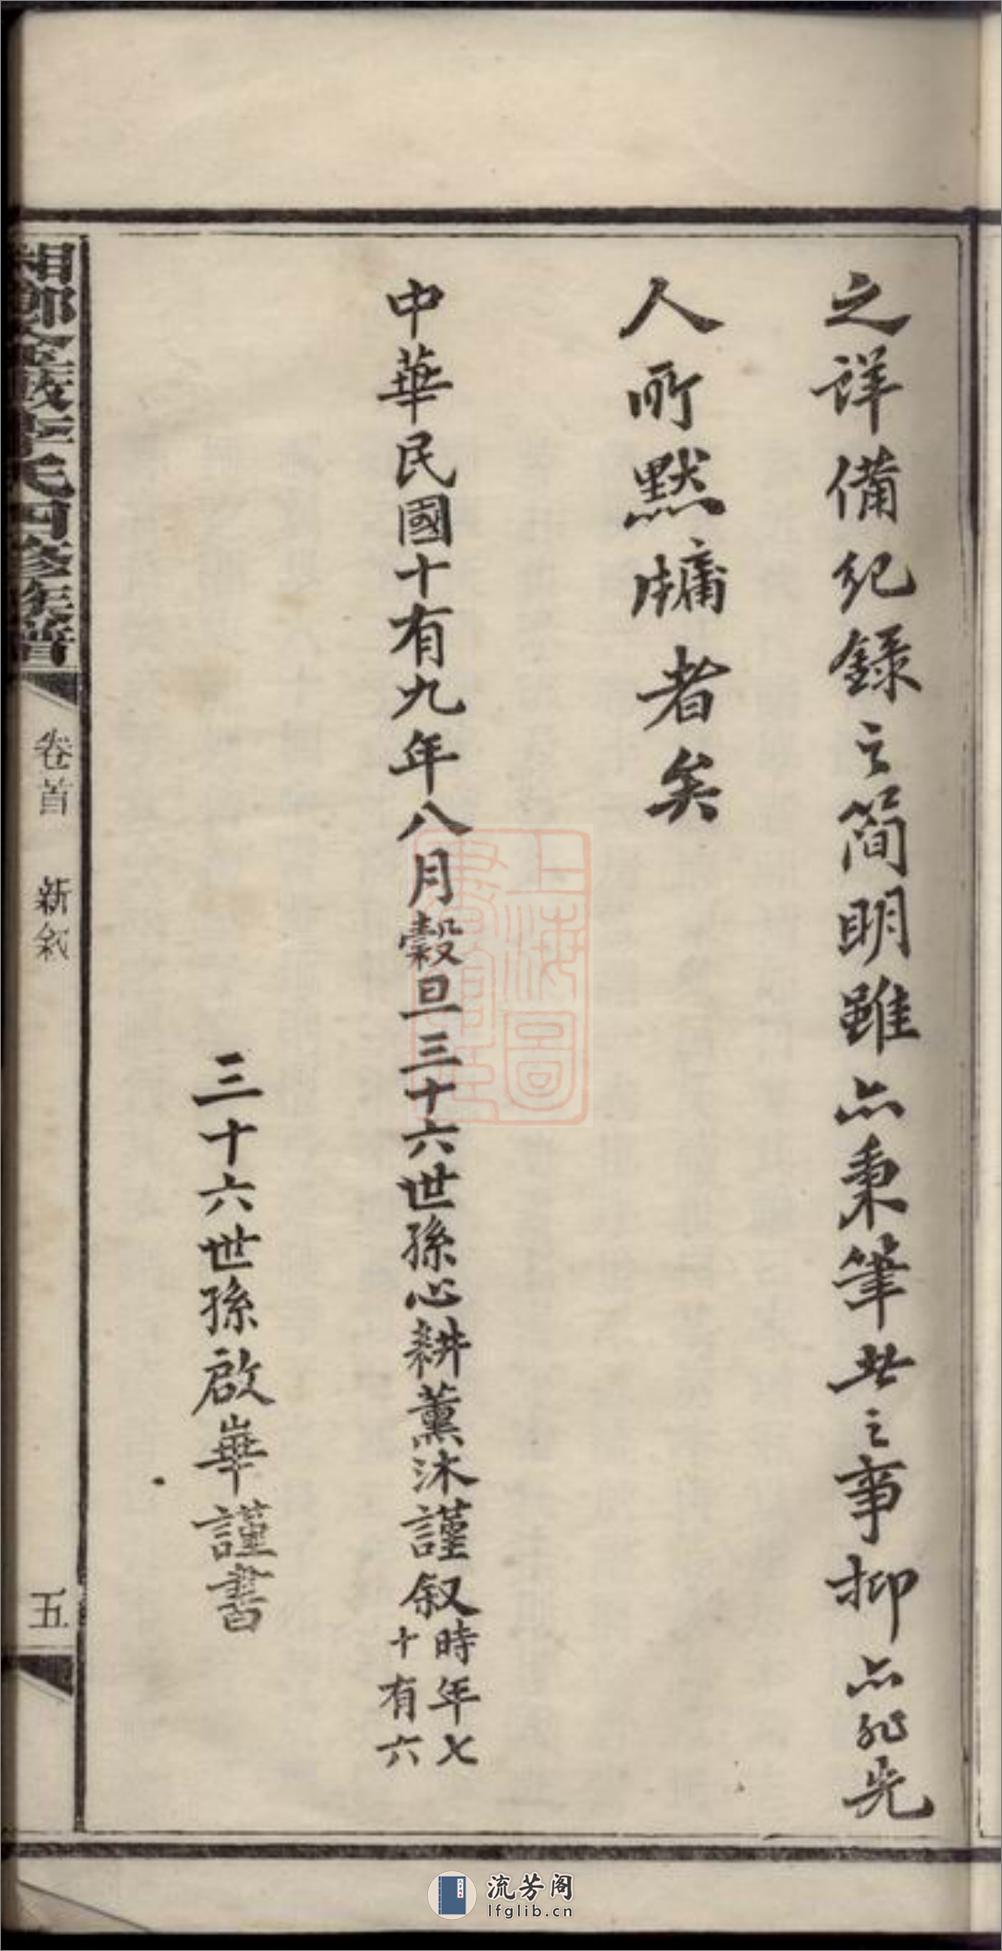 之詳備紀錄之簡明雖亦秉筆者之事抑亦祀先
人所默牖者矣
中華民國十有九年八月穀旦三十六世孫心耕薰沐謹叙時年七
十有六
三十六世孫啟華謹書
李氏四修族譜
卷首 新叙
五
上海圖
流芳阁
lfglib.cn